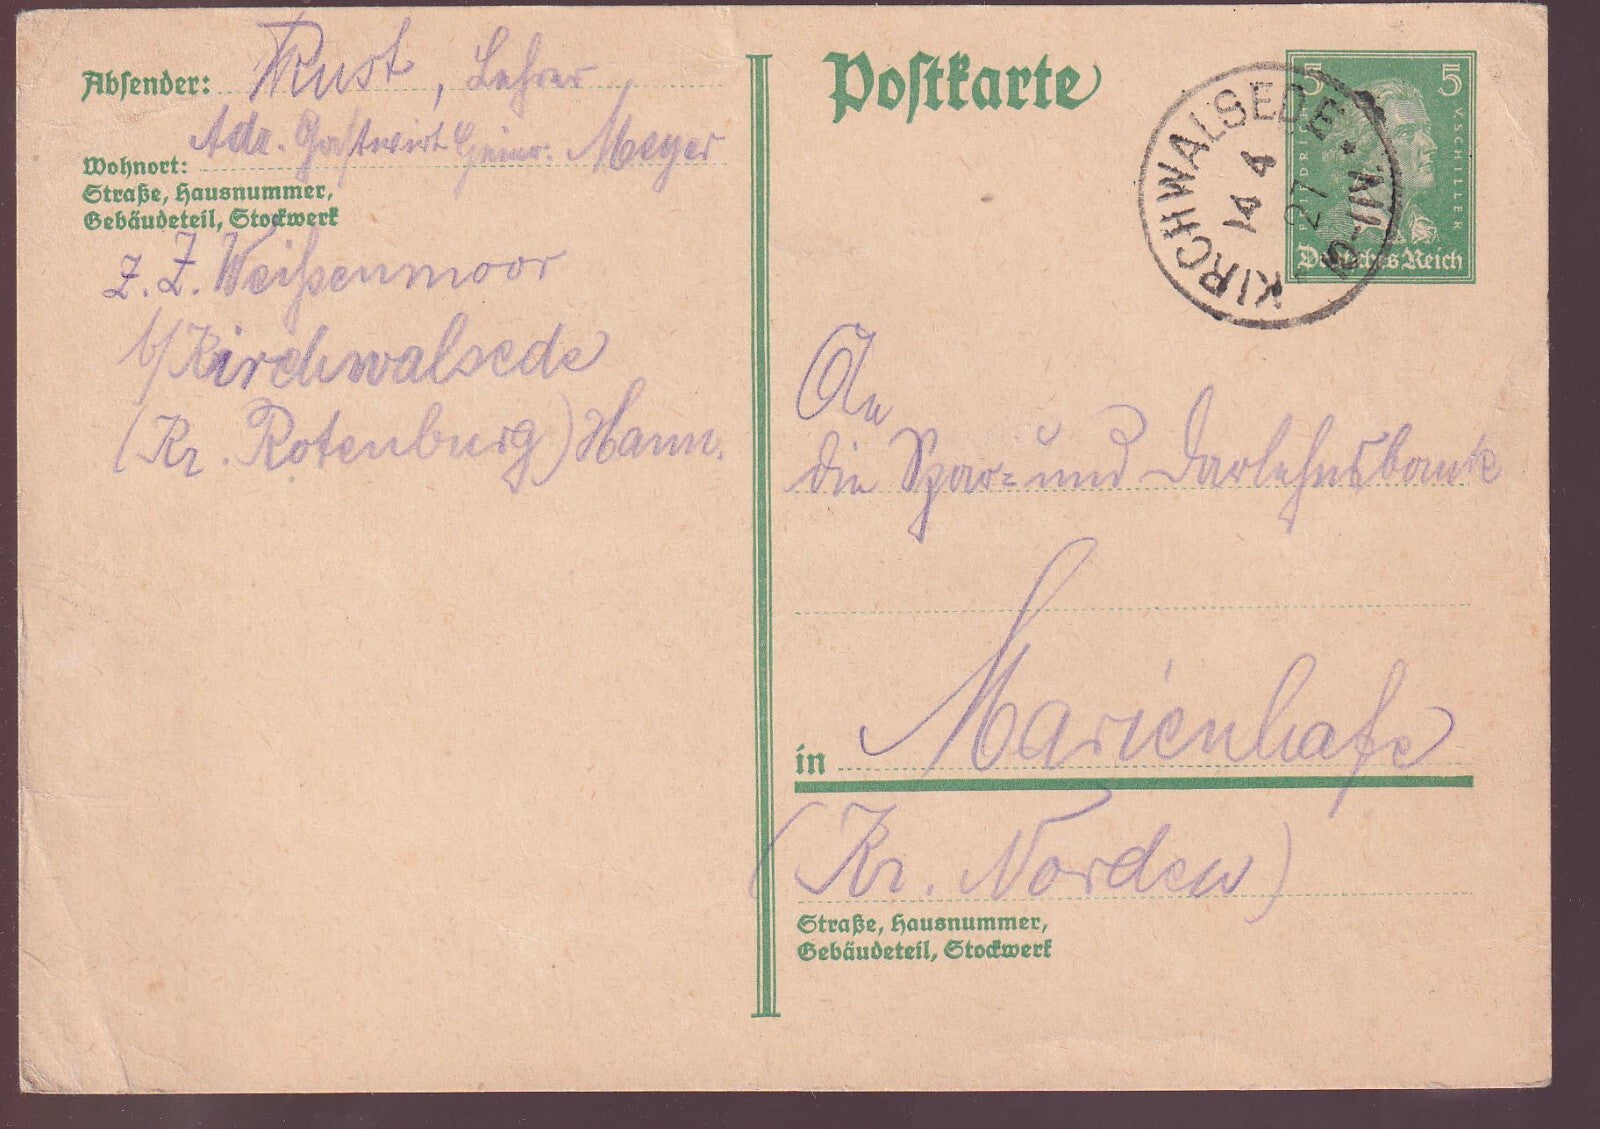 Absender: Rust, Lehrer
Adr. Gastwirt Heinr. Meyer
Wohnort:
Straße, Hausnummer,
Gebäudeteil, Stockwerk
z. Z. Weißenmoor
b/Kirchwalsede
(Kr. Rotenburg) Hann.
Postkarte
KIRCHWALSEDE
14 4
27
5 5
V. SCHILLER
Deutsches Reich
An
die Spar- und Darlehnsbank
in Marienhafe
(Kr. Norden)
Straße, Hausnummer,
Gebäudeteil, Stockwerk